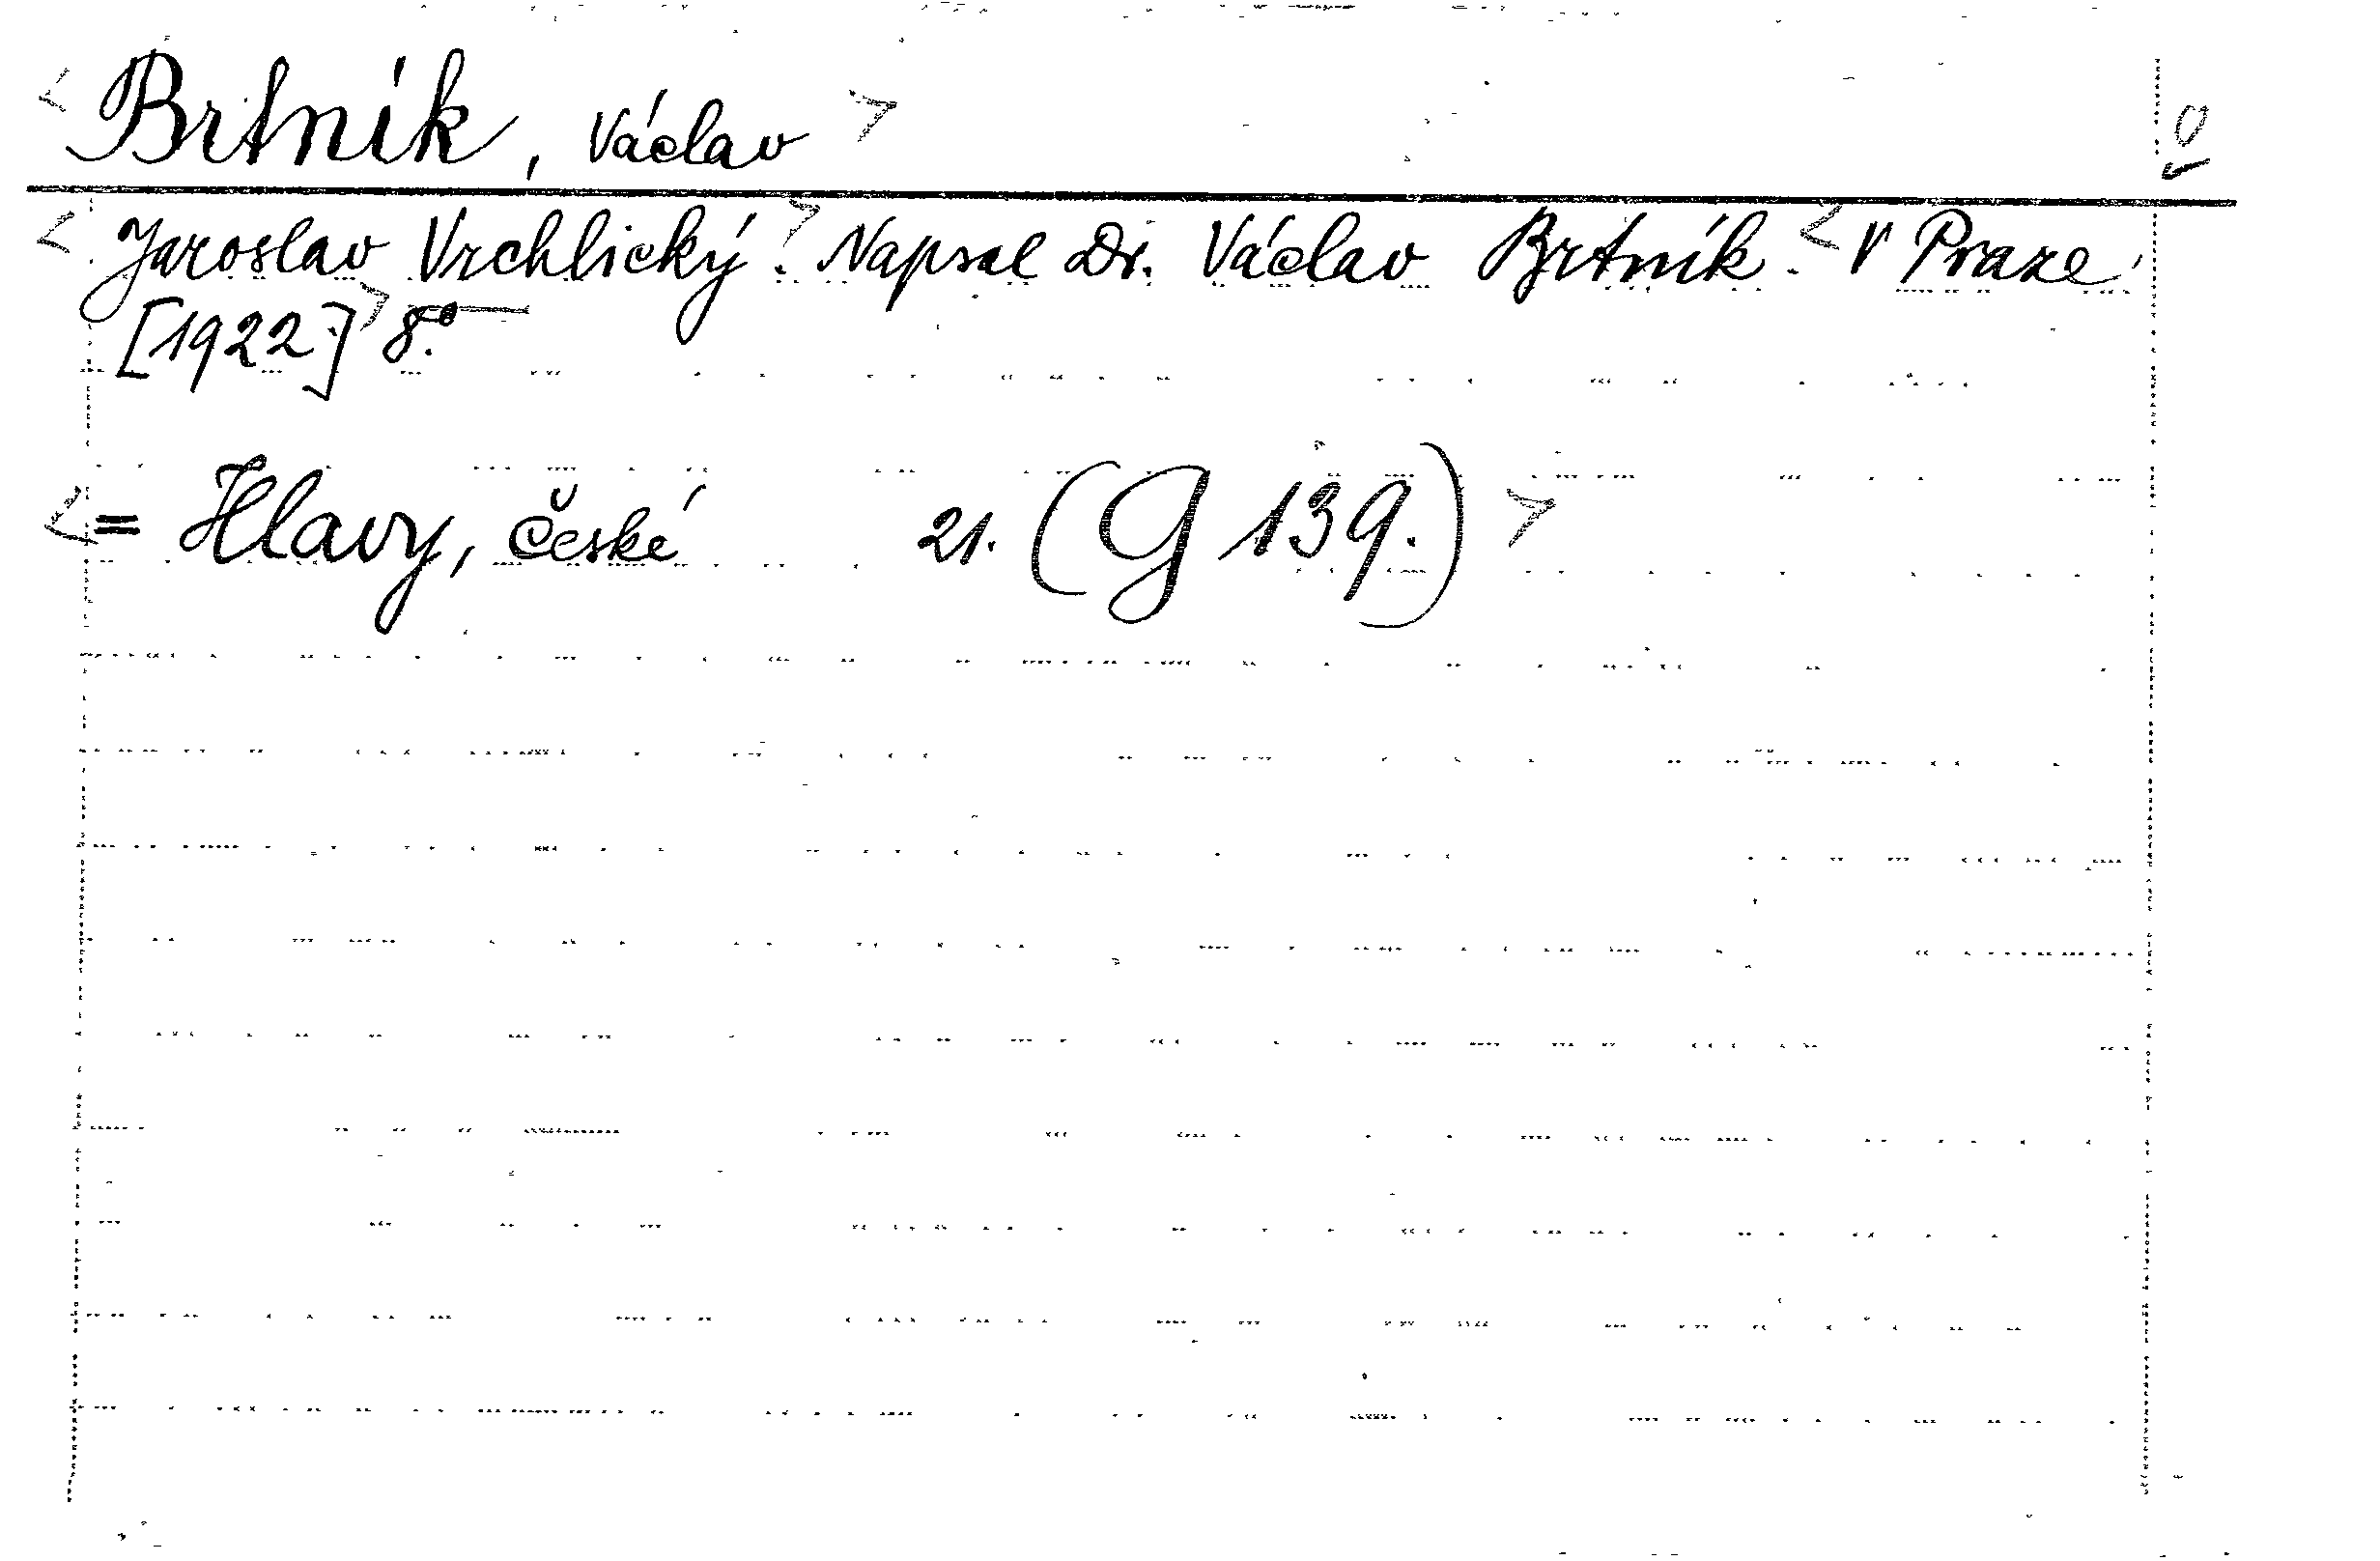 < Brtník, Václav > 0
< Jaroslav Vrchlický. > Napsal Dr. Václav Brtník. < V Praze,
[1922] > 8.°
< = Hlavy, české 21. (G 139.) >